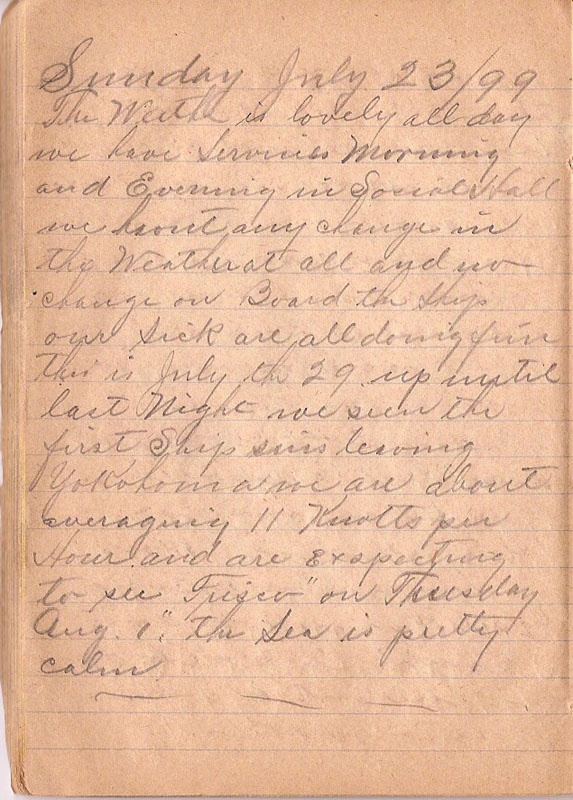 Sunday July 23/99
The Weath is lovely all day
we have Services Morning
and Evening in Social Hall
we havnt any change in
the Weather at all and no
change on Board the Ship
our Sick are all doing fine
this is July th 29 up until
last Night we seen the
first Ship sins leaving
Yokohoma we are about
averaging 11 Knotts per
Hour and are exspecting
to see Frisco" on Thuesday
Aug. 1". the Sea is pretty
calm